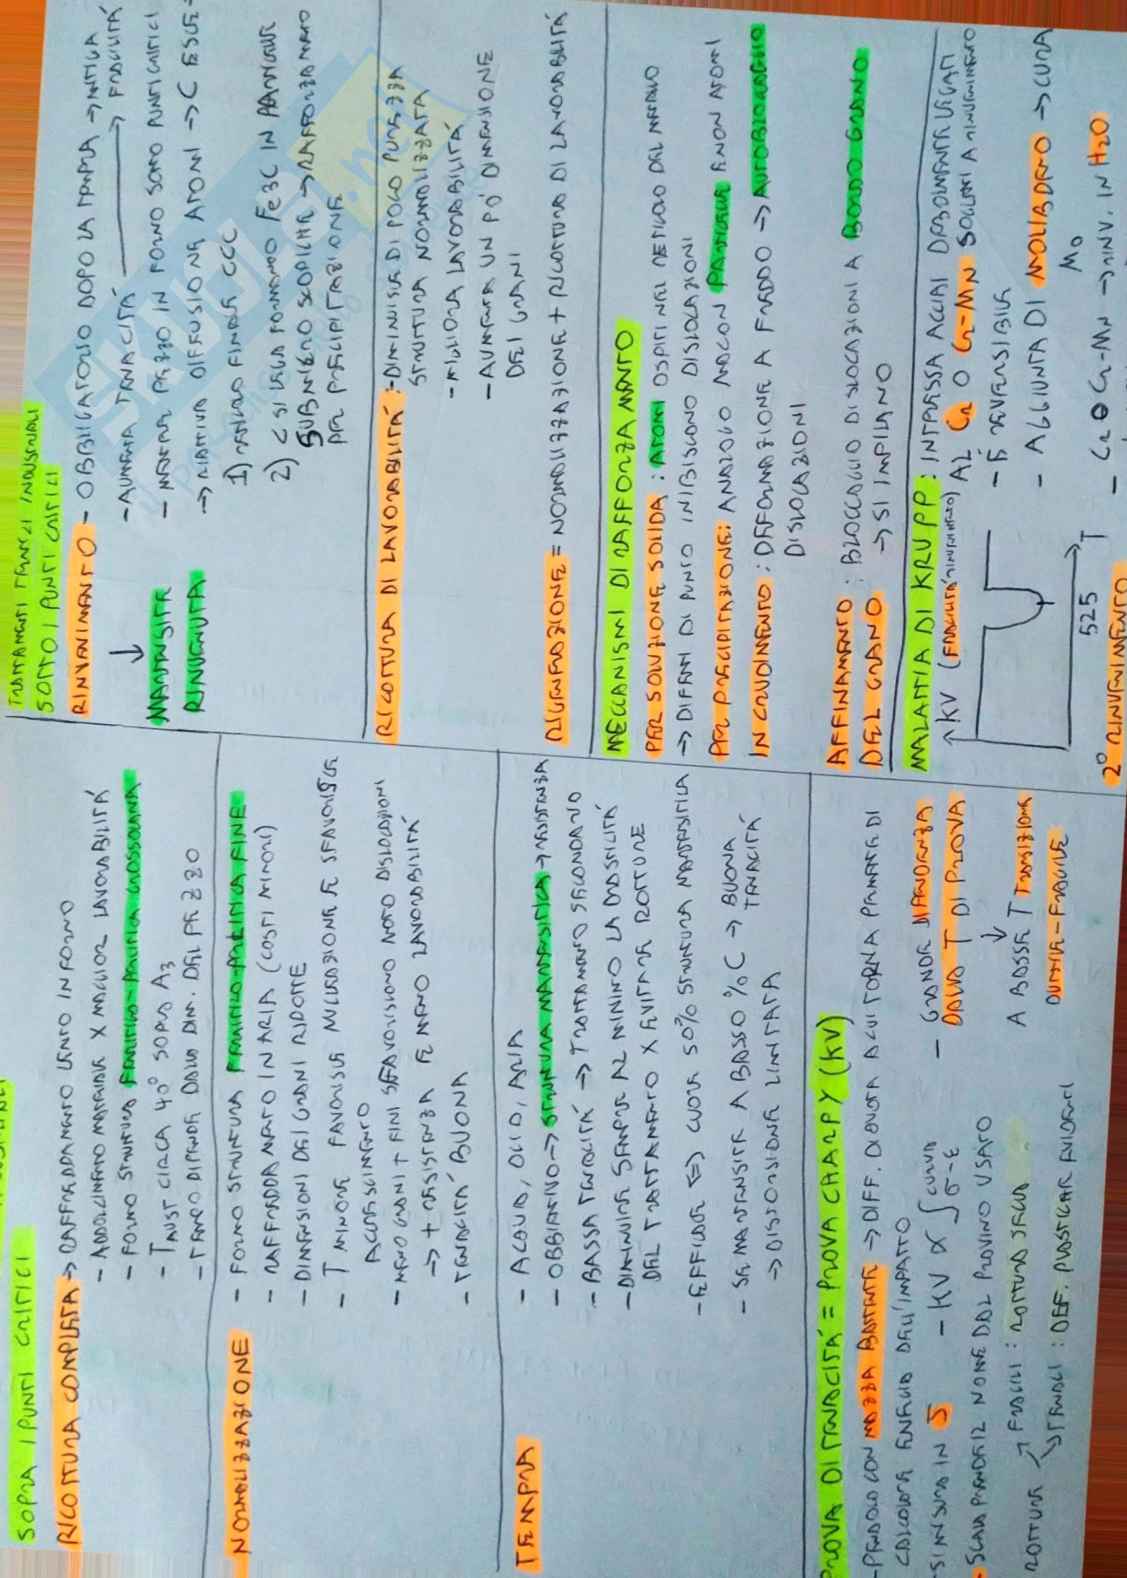 SOPRA I PUNTI CRITICI
RICOTTURA COMPLETA → RAFFREDDAMENTO LENTO IN FORNO
- ADDOLCIMENTO MATERIALE X MAGGIOR LAVORABILITÁ
- FORMO STRUTTURA FERRITICO-PERLITICA GROSSOLANA
- TAUST CIRCA 40° SOPRA A3
- TEMPO DIPENDE DALLA DIM. DEL PEZZO
NORMALIZZAZIONE
- FORMO STRUTTURA FERRITICO-PERLITICA FINE
- RAFFREDDAMENTO IN ARIA (COSTI MINORI)
- DIMENSIONI DEI GRANI RIDOTTE
- T MINORE FAVORISCE NUCLEAZIONE E SFAVORISCE
ACCRESCIMENTO
- MENO GRANI + FINI SFAVORISCONO MOTO DISLOCAZIONI
→ + RESISTENZA E MENO LAVORABILITÁ
- TENACITÁ BUONA
TEMPRA
- ACQUA, OLIO, ARIA
- OBBIETTIVO → STRUTTURA MARTENSITICA → RESISTENZA
- BASSA TENACITÁ → TRATTAMENTO SECONDARIO
- DIMINUIRE SEMPRE AL MINIMO LA DRASTICITÁ
DEL TRATTAMENTO X EVITARE ROTTURE
- EFFICACE ⇔ CUORE 50% STRUTTURA MARTENSITICA
- SE MARTENSITE A BASSO % C → BUONA
TENACITÁ
→ DISTORSIONE LIMITATA
PROVA DI TENACITÁ = PROVA CHARPY (KV)
- PENDOLO CON MAZZA BATTENTE → DIFF. DI QUOTA A CUI TORNA PERMETTE DI
CALCOLARE ENERGIA DELL'IMPATTO
- SI MISURA IN J - KV ∝ ∫ CURVA σ-ε
- SCALA PRENDE IL NOME DAL PROVINO USATO
ROTTURE ↗ FRAGILI: ROTTURA SECCA
↘ TENACI: DEF. PLASTICHE EVIDENTI
- GRANDE DIPENDENZA
DALLA T DI PROVA
↓
A BASSE T TRANSIZIONE
DUTTILE-FRAGILE
TRATTAMENTI TERMICI INDUSTRIALI
SOTTO I PUNTI CRITICI
RINVENIMENTO - OBBLIGATORIO DOPO LA TEMPRA → MITIGA FRAGILITÁ
↓
MARTENSITE
RINVENUTA
- AUMENTA TENACITÁ
- METTERE PEZZO IN FORNO SOTTO PUNTI CRITICI
→ RIATTIVO DIFFUSIONE ATOMI → C ESCE
1) RETICOLO FINALE CCC
2) C SI LEGA FORMANDO Fe3C IN PARTICELLE
SUBMICROSCOPICHE → RAFFORZAMENTO
PER PRECIPITAZIONE
RICOTTURA DI LAVORABILITÁ: - DIMINUISCE DI POCO DUREZZA
STRUTTURA NORMALIZZATA
- MIGLIORA LAVORABILITÁ
- AUMENTA UN PÓ DIMENSIONE
DEI GRANI
RIGENERAZIONE = NORMALIZZAZIONE + RICOTTURA DI LAVORABILITÁ
MECCANISMI DI RAFFORZAMENTO
PER SOLUZIONE SOLIDA: ATOMI OSPITI NEL RETICOLO DEL METALLO
→ DIFETTI DI PUNTO INIBISCONO DISLOCAZIONI
PER PRECIPITAZIONE: ANALOGO MA CON PARTICELLE E NON ATOMI
INCRUDIMENTO: DEFORMAZIONE A FREDDO → AUTOBLOCCAGGIO
DISLOCAZIONI
AFFINAMENTO
DEL GRANO: BLOCCAGGIO DISLOCAZIONI A BORDO GRANO
→ SI IMPILANO
MALATTIA DI KRUPP: INTERESSA ACCIAI DEBOLMENTE LEGATI
AL Cr O Cr-Mn SOGGETTI A RINVENIMENTO
↑KV (FRAGILITÁ RINVENIMENTO)
525 T
- É REVERSIBILE
- AGGIUNTA DI MOLIBDENO → CURA
Mo
- Cr O Cr-Mn → RINV. IN H2O
2° RINVENIMENTO